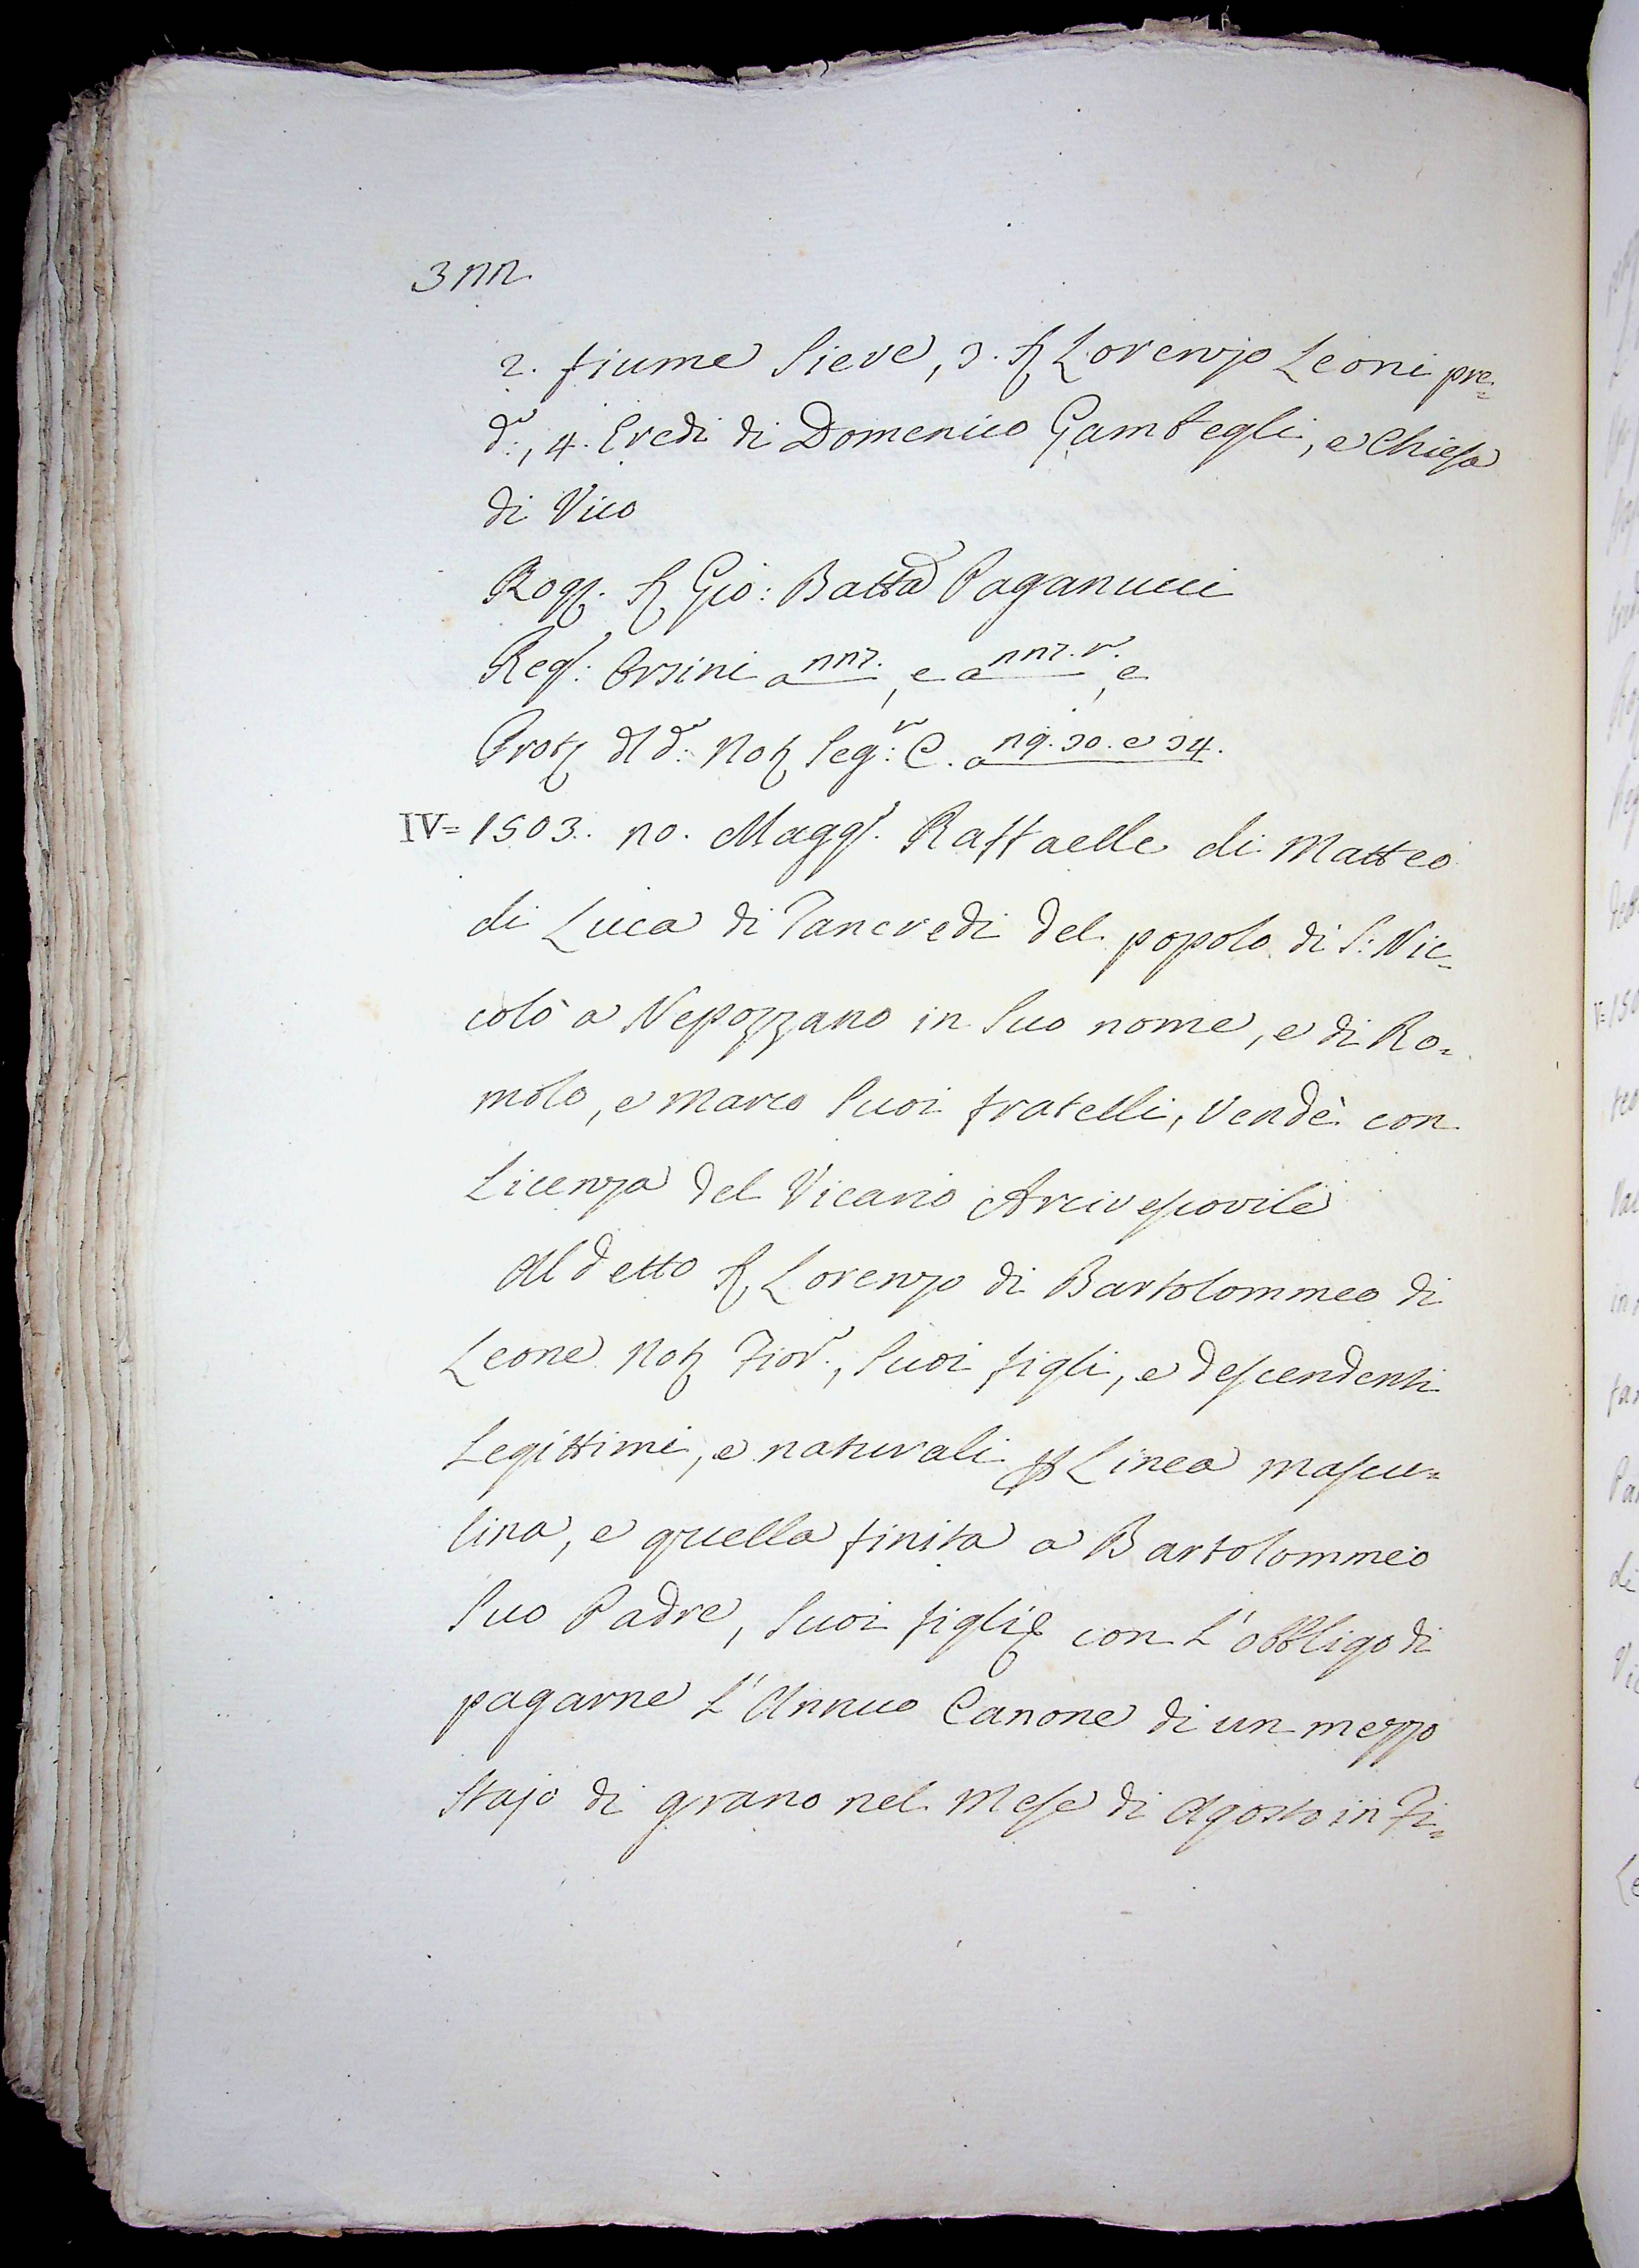 3nn.
2. fiume Sieve, 3. Sr Lorenzo Leoni pre-
do:, 4. Eredi di Domenico Gambegli, e Chiesa
di Vico
Rog. Sr Gio: Batta Paganucci
Reg: Orsini a nn3., e a nn3. v., e
Prot. dl do: Not. Segr: C. a nq. 30. e 34.
IV= 1503. no. Magg. Raffaelle di Matteo
di Luca di Tancredi del popolo di S: Nic-
colò a Nepozzano in Suo nome, e di Ro-
molo, e Marco Suoi fratelli, Vendè con
Licenza del Vicario Arcivescovile
Al detto Sr Lorenzo di Bartolommeo di
Leone Not. Fior., Suoi figli, e descendenti
Legittimi, e naturali p Linea mascu-
lina, e quella finita a Bartolommeo
Suo Padre, Suoi figli & con L'obbligo di
pagarne L'Annuo Canone di un mezzo
Stajo di grano nel Mese di Agosto in Fi-